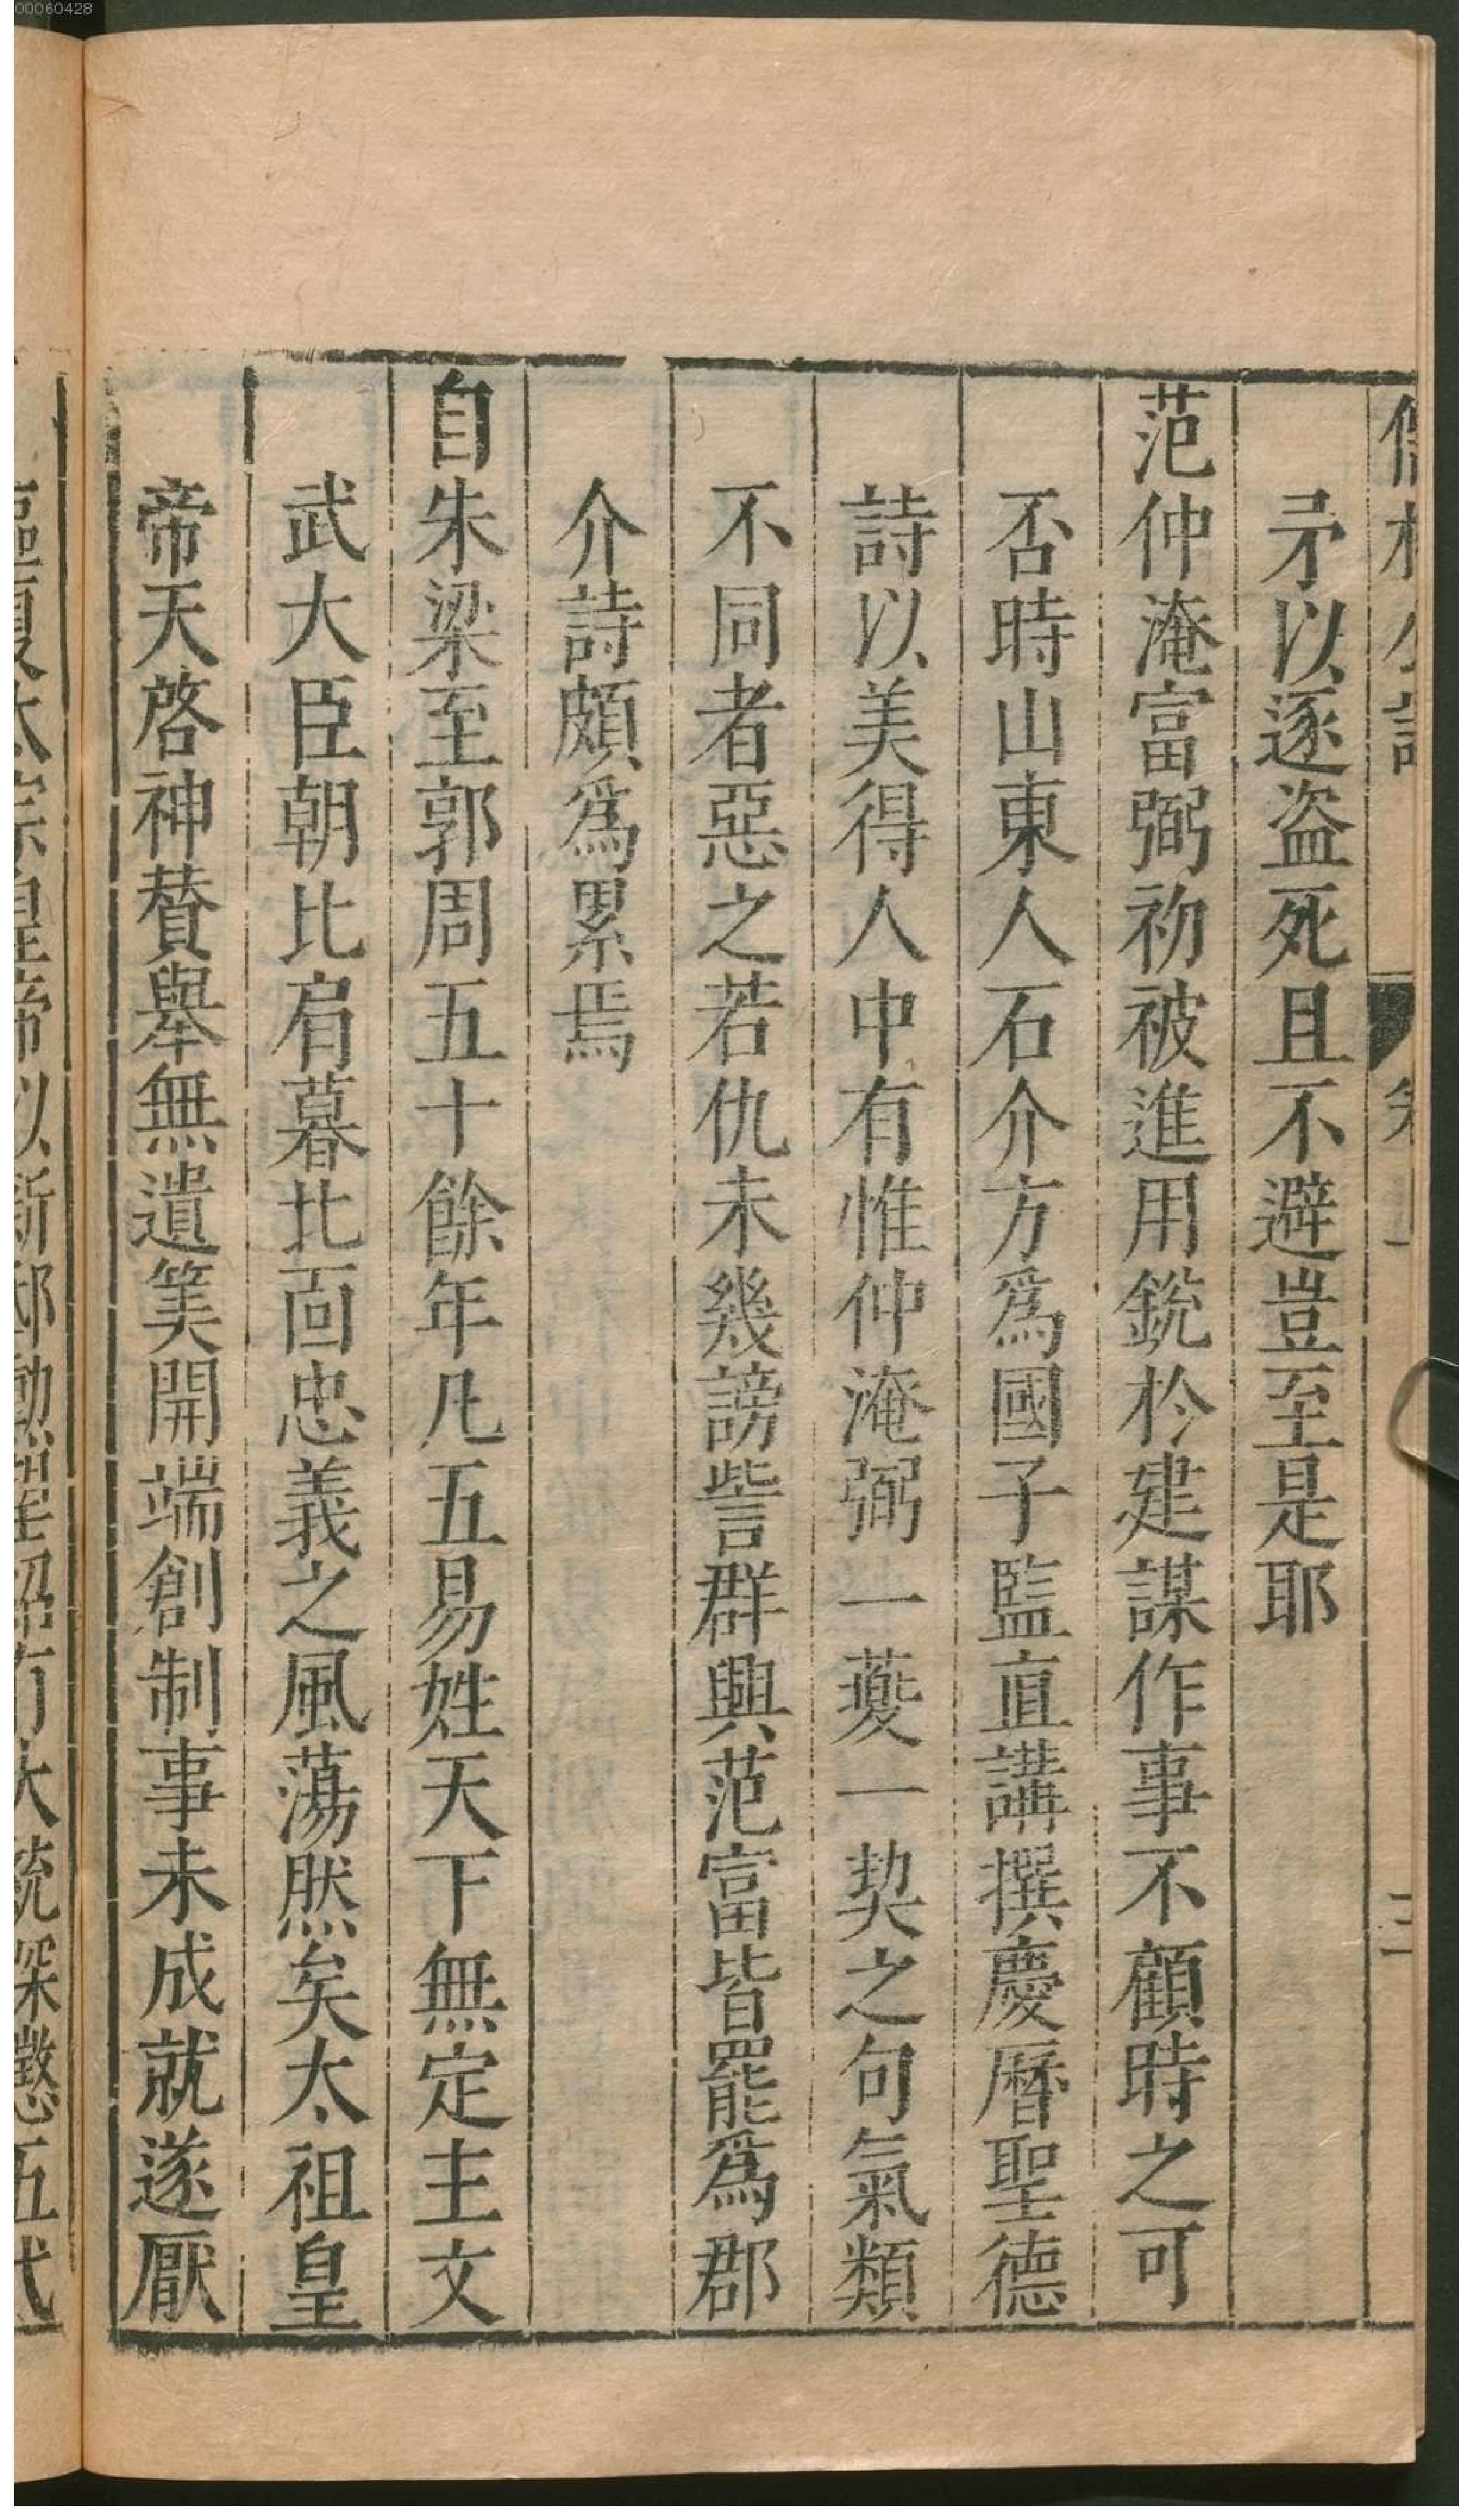 00060428
矛以逐盗死且不避豈至是耶
范仲淹富弼初被進用銳於建謀作事不顧時之可
否時山東人石介方爲國子監直講撰慶曆聖德
詩以美得人中有惟仲淹弼一夔一契之句氣類
不同者惡之若仇未幾謗訾群興范富皆罷爲郡
介詩頗爲累焉
自朱梁至郭周五十餘年凡五易姓天下無定主文
武大臣朝比肩暮比面忠義之風蕩然矣太祖皇
帝天啓神賛舉無遺筭開端創制事未成就遂厭